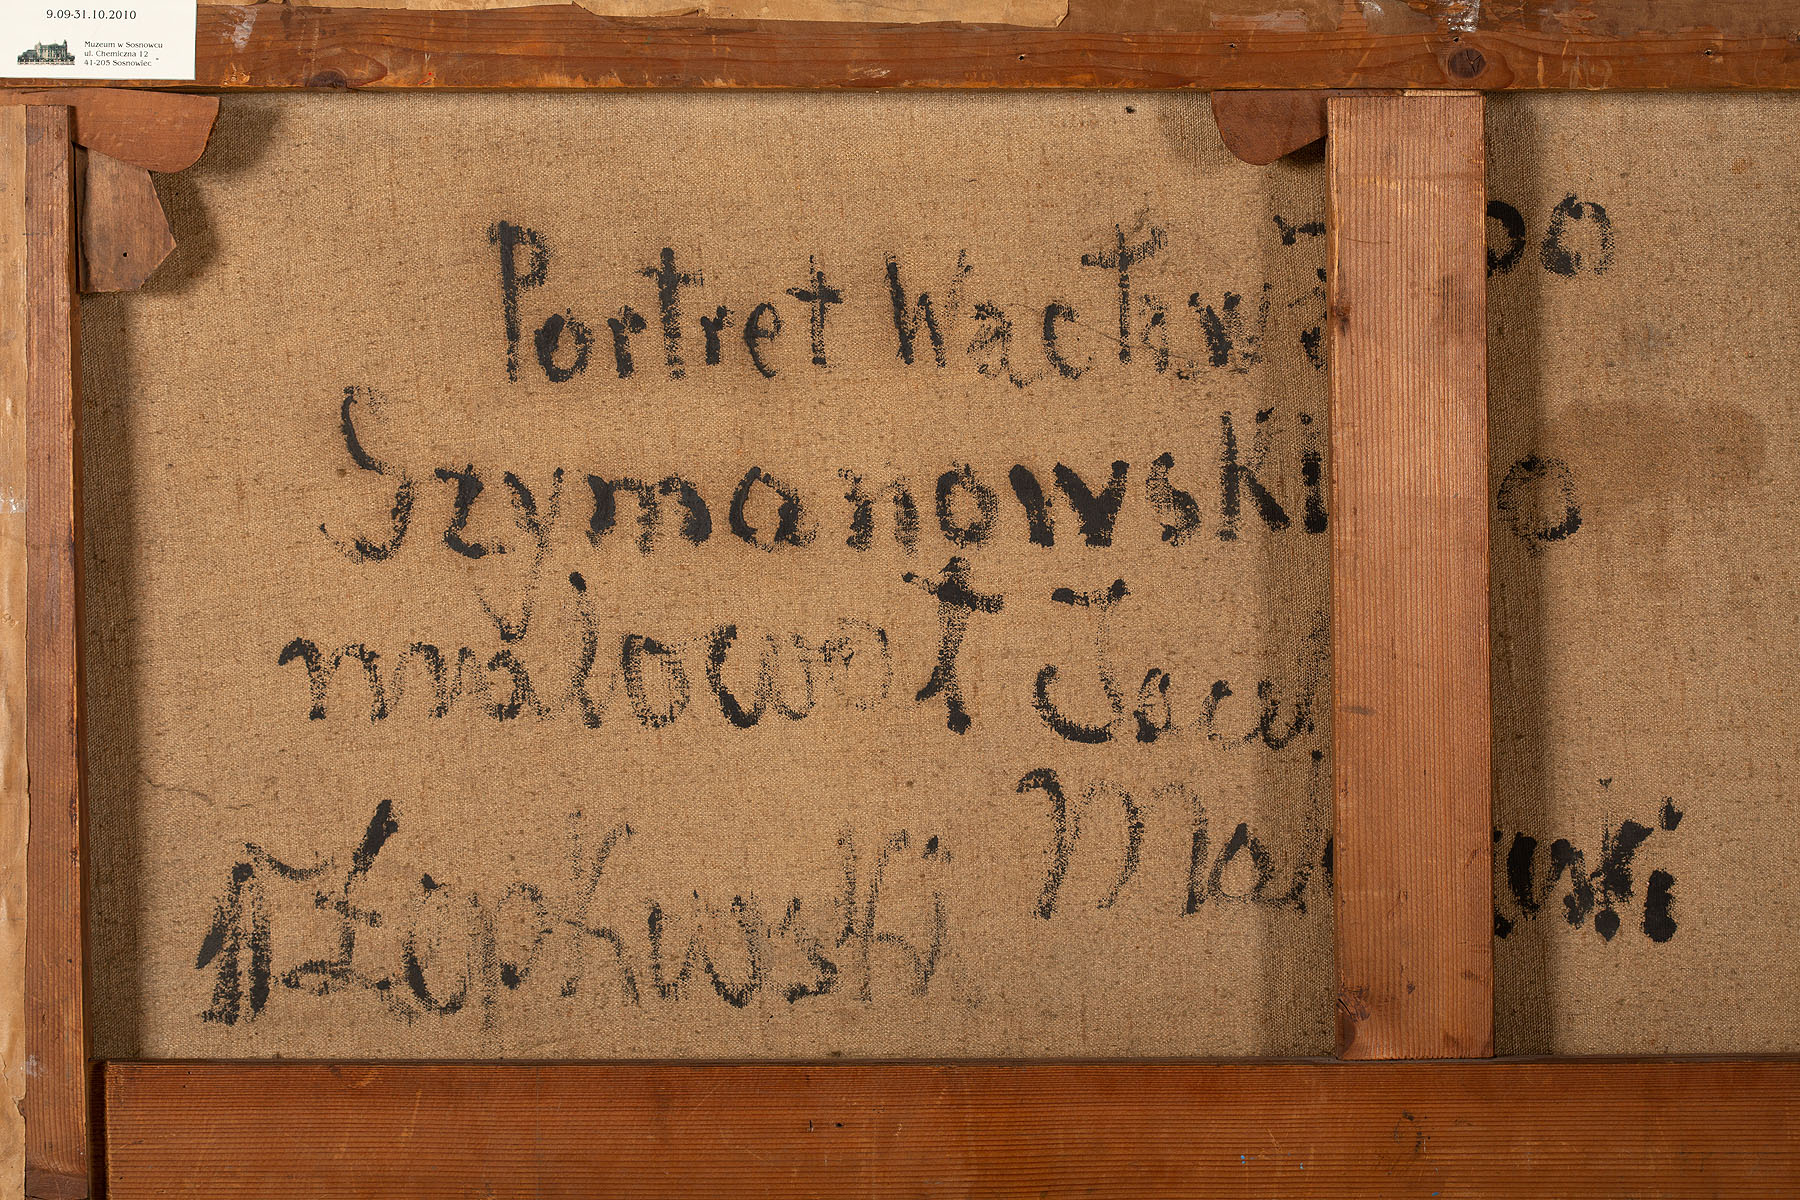 9.09-31.10.2010
Muzeum w Sosnowcu
ul. Chemiczna 12
41-205 Sosnowiec
Portret Wacława
Szymanowski o
malował Jace
Łopkuwski